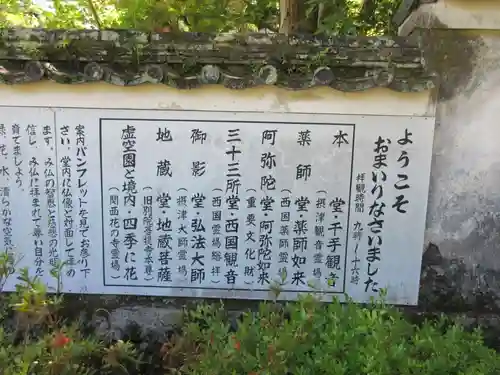 ようこそ
おまいりなさいました
拝観時間 九時〜十六時
本堂・千手観音
(摂津観音霊場)
薬師堂・薬師如来
(西国薬師霊場)
阿弥陀堂・阿弥陀如来
(重要文化財)
三十三所堂・西国観音
(西国霊場総拝)
御影堂・弘法大師
(摂津大師霊場)
地蔵堂・地蔵菩薩
虚空園と境内・四季に花
(関西花の寺霊場)
案内パンフレットを見てお参り下
さい。堂内に仏像と対面して拝め
ます。み仏の慈悲と
信し、み仏に抱まれて尊い自分を
育てましょう。
緑、花、水、清らかな空気